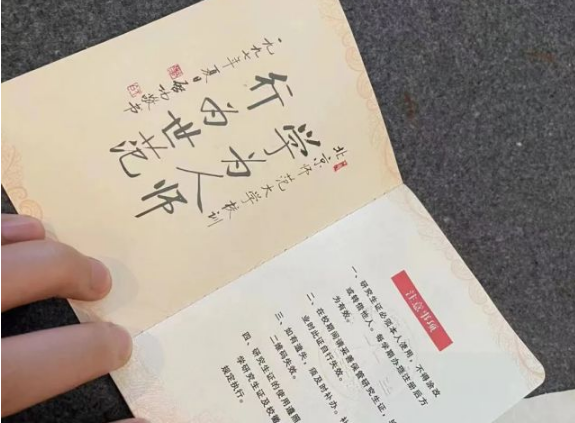 北京师范大学校训
学为人师
行为世范
一九九七年夏日
启功敬书
注意事项
一、研究生证必须本人使用，不得涂改
或转借他人。每学期办理注册后方
为有效。
二、在校期间请妥善保管研究生证，
业时此证自行失效。
三、如有遗失，须及时补办。补
二维码失效。
四、研究生证的使用遵照
学研究生证及校徽
规定执行。